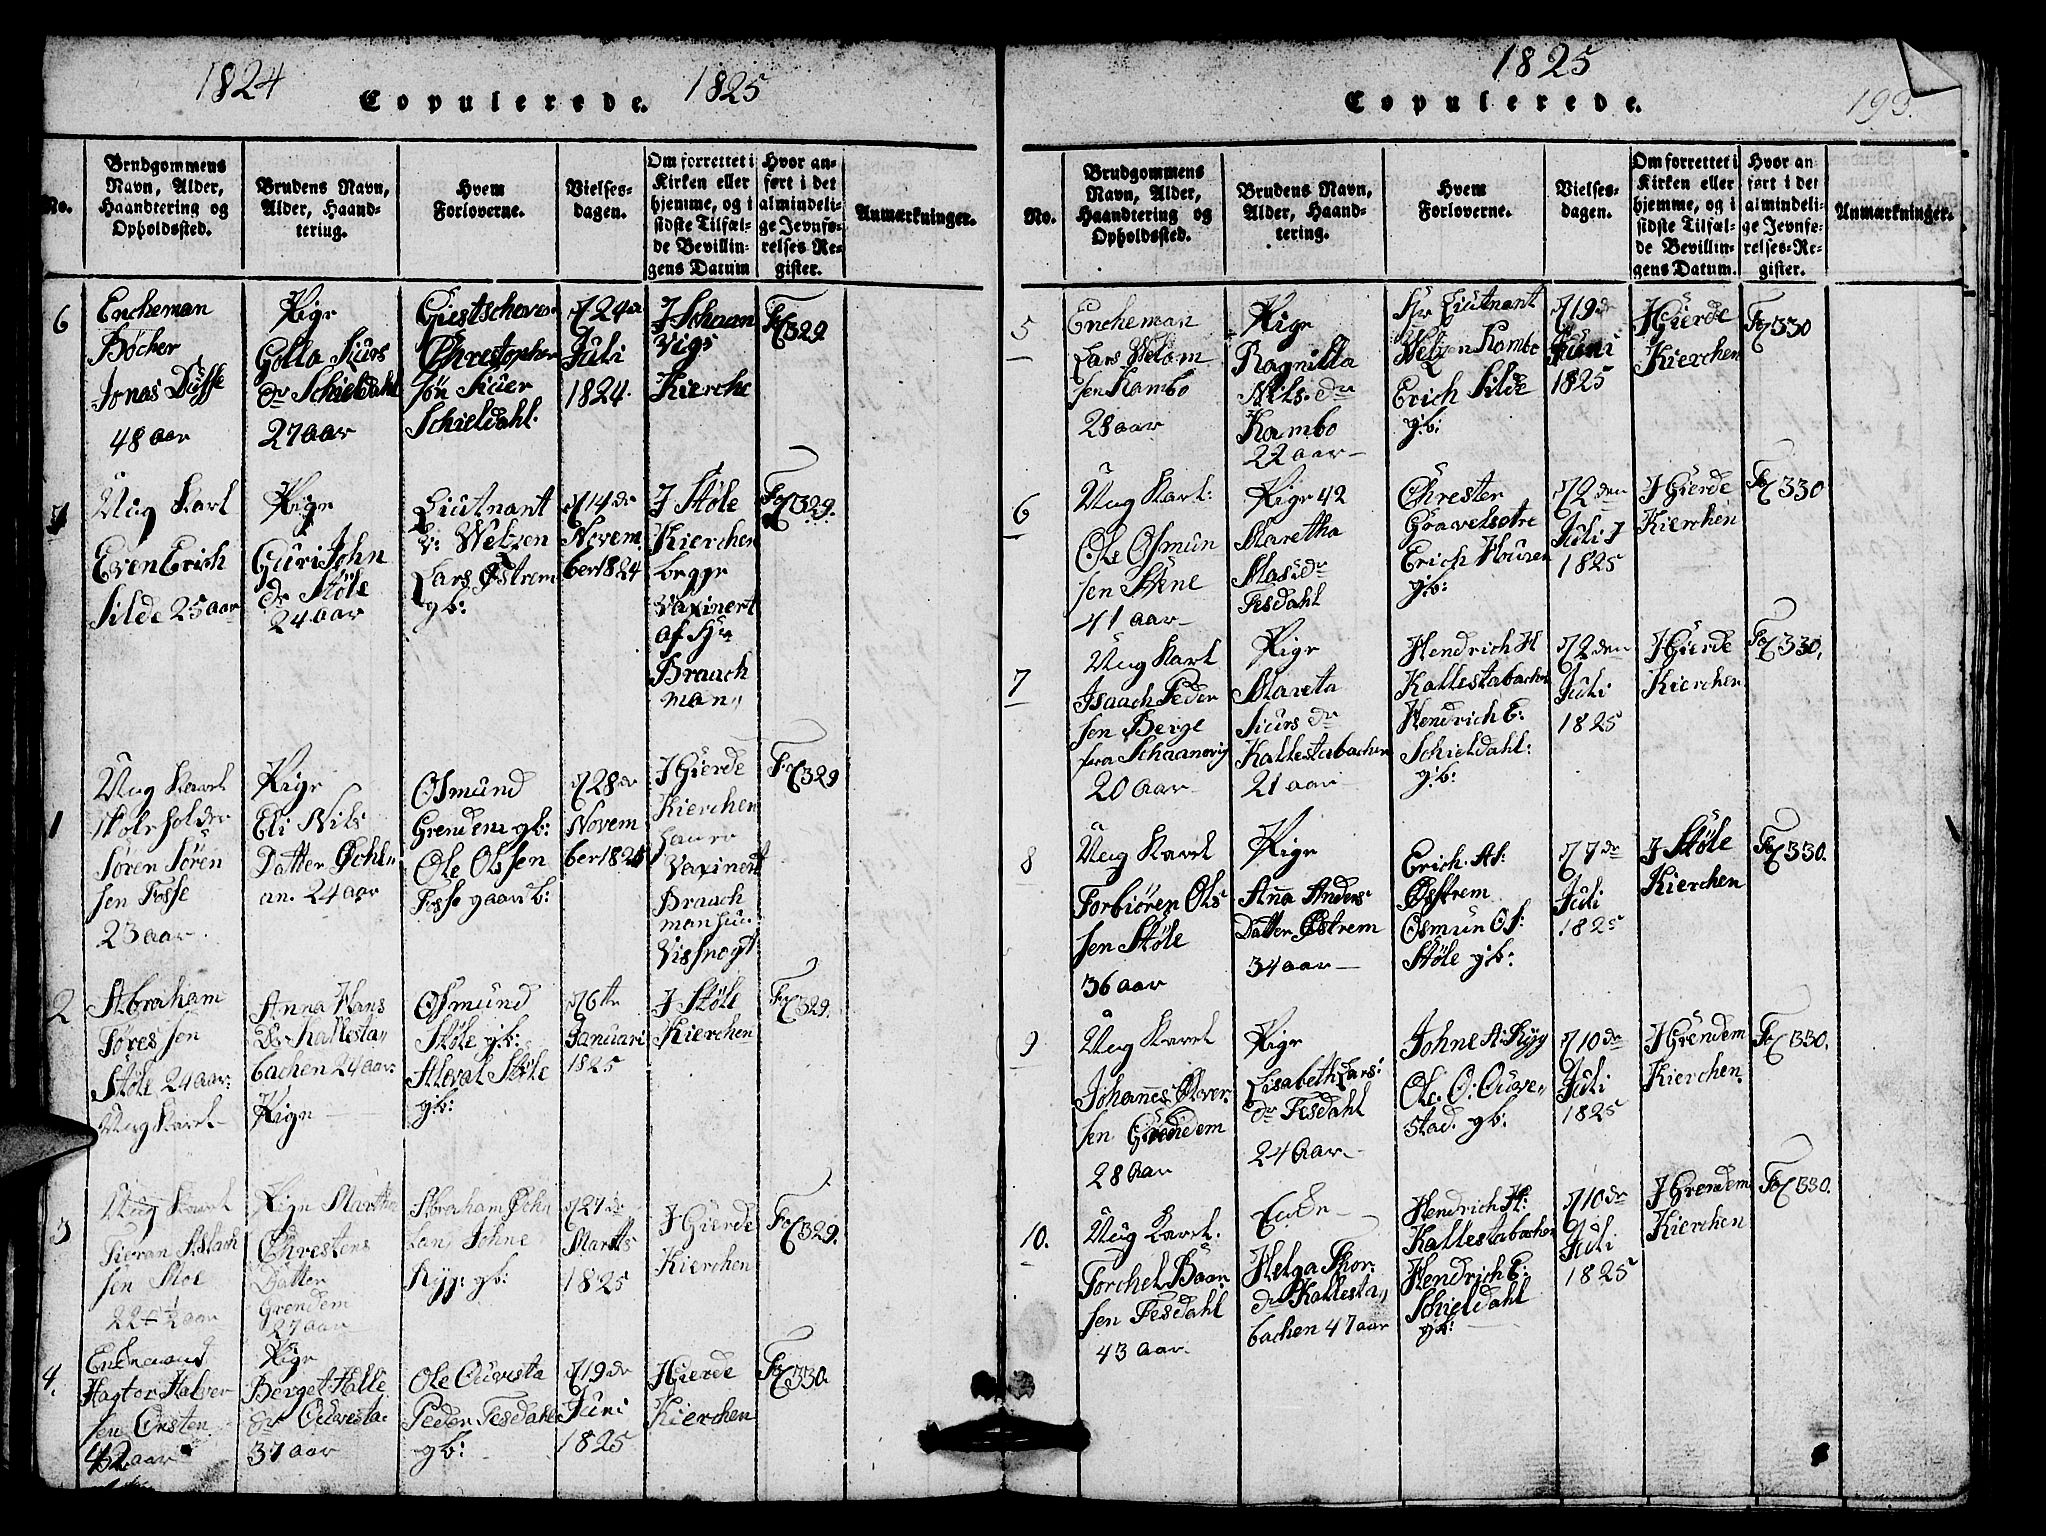 1824
Copulerede.
1825
No.
Brudgommens
Navn, Alder,
Haandtering og
Opholdssted.
Brudens Navn,
Alder, Haand-
tering.
Hvem
Forloverne.
Vielses-
dagen.
Om forrettet i
Kirken eller
hjemme, og i
sidste Tilfæl-
de Bevillin-
gens Datum
Hvor an-
ført i det
almindeli-
ge Jevnfø-
relses Re-
gister.
Anmærkninger.
6
Encheman
Böcher
Jonas Dusse
48 aar
Pige
Golla Siurs
dr Schieldahl
27 aar
Christopher
Siuer
Schieldahl.
24de
Juli
1824.
J Schaan
Vigs
Kierche
Fol 329
7
Ung Karl
Even Erich
Silde 25 aar
Pige
Guri John
dr Støle
24 aar
Liutnant
v: Welzen
Lars Østrem
gb:
14de
Novem
ber 1824
J Støle
Kierchen
begge
Vaxinert
af Hr
Braach
man,,
Fol 329.
1
Ung Karl
Søren Søren
sen Fosse
23 aar.
Pige
Eli Nils
Datter Øchl
an. 24 aar
Osmund
Grendem gb:
Ole Olssen
Fosse gaard b:
28de
Novem
ber 182
J Gierde
Kierchen
Vaxinert
Braach
man
Fol 329
2
Abraham
Tøres sen
Støle 24 aar:
Ung Karl
Anna Hans
dr Kallesta
bachen 24 aar
Pige
Osmund
Støle gb:
Støle
gb:
6te
Januari
1825
J Støle
Kierchen
Fol 329.
3
Ung Karl
sen Støle
22 ½ aar
Pige Martha
Chrestens
Datter
Grendem
27 aar
Abraham Øch
lan Johne
Kyg: gb:
27de
Marts
1825
J Gierde
Kierchen
Fol 329.
4.
Enchemand
Hagtor Halver
sen Ørsten
42 aar
Pige
Berget Halle
dr Ouvesta
37 aar
Ole Ouvesta
Peder Fesdahl
gb:
19de
Juni
1825
J Gierde
Kierchen
Fol 330.
1825
Copulerede.
193.
No.
Brudgommens
Navn, Alder,
Haandtering og
Opholdssted.
Brudens Navn,
Alder, Haand-
tering.
Hvem
Forloverne.
Vielses-
dagen.
Om forrettet i
Kirken eller
hjemme, og i
sidste Tilfæl-
de Bevillin-
gens Datum.
Hvor an
ført i det
almindeli-
ge Jevnfø-
relses-Re-
gister.
Anmærkninger.
5
Encheman
Lars Velom
sen Kambo
28 aar
Pige
Ragnilla
Nils. dr
Kambo
22 aar
Hr Liutnant
Welzen Kambo
Erich Silde
gb:
19de
Juni
1825
J Gierde
Kierchen
Fol 330
6
Ung Karl:
Ole Osmun
sen Støle
41 aar
Pige 42
Maretha
Mas: dr
Fesdahl
Chrester
Gravelsetre
Erich Housen
gb:
2den
Juli
1825
J Gierde
Kierchen
Fol 330
7
Ung Karl
Isaach Peder
sen Berge
fra Schaanevig
20 aar
Pige
Mareta
Siurs dr
Kallestabachen
21 aar
Hendrich H
Kallestabachen
Hendrich E:
Schieldahl:
gb:
2den
Juli
1825
J Gierde
Kierchen
Fol 330,
8
Ung Karl
Torbiören Ols
sen Støle
36 aar
Pige
Anna Anders
Datter Østrem
34 aar
Erich. As:
Østrem
Osmun Os:
Støle gb:
7de
Juli
1825
J Støle
Kierchen
Fol 330.
9
Ung Karl
Johannes Halver
sen Grendem
28 Aar
Pige
Lisabeth Lars:
dr Fesdahl
24 Aar
Johne A: Kyg
Ole. O. Ouve,,
stad. gb:
10de
Juli
1825
J Grendem
Kierchen.
Fol 330.
10.
Ung Karl.
Torchel Baar
sen Fesdahl
43 Aar
Enche
Helga Thor:
dr Kallesta,,
bachen 47 aar
Hendrich H:
Kallestabachen
Hendrich E:
Schieldahl
gb:
10de
Juli
1825
J Grendem
Kierchen
Fol 330.